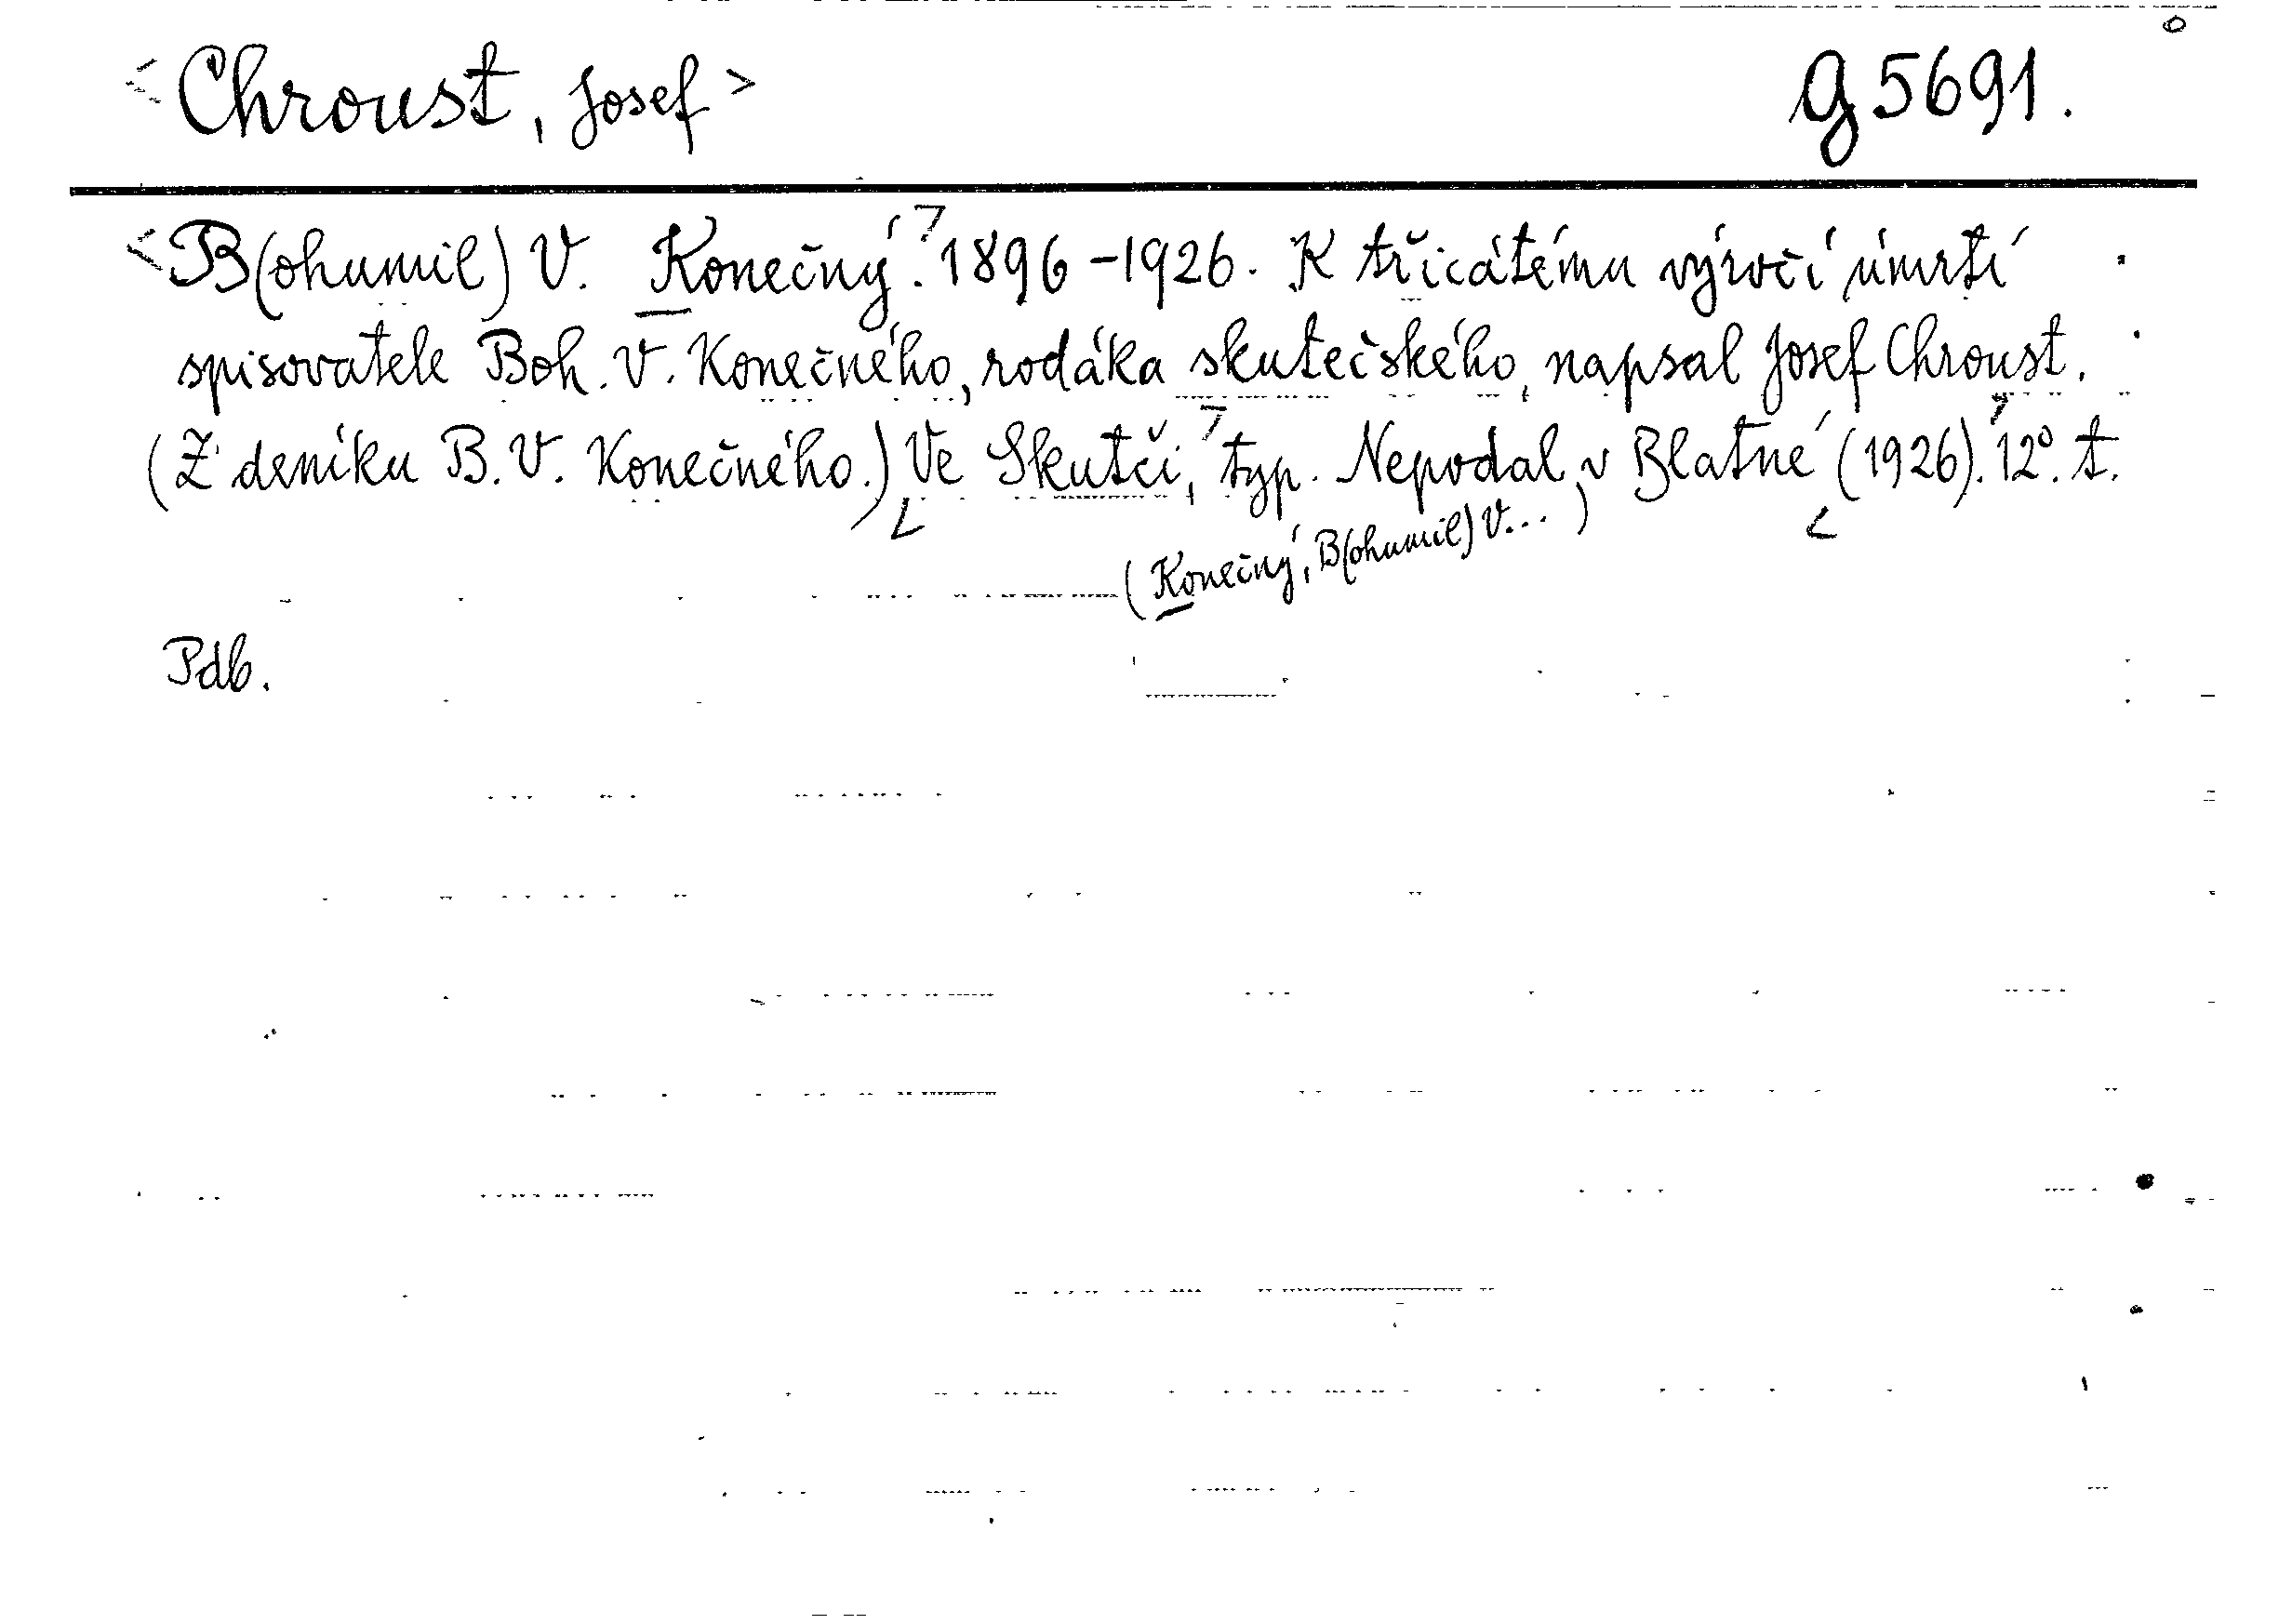 <Chroust, Josef> g 5691.
<B(ohumil) V. Konečný.> 1896-1926. K třicátému výročí úmrtí
spisovatele Boh. V. Konečného, rodáka skutečského, napsal Josef Chroust.
(Z deníku B. V. Konečného.) <Ve Skutči,> typ. Nepodal v Blatné <(1926).> 12°. t.
(Konečný, B(ohumil) V...)
Pdb.